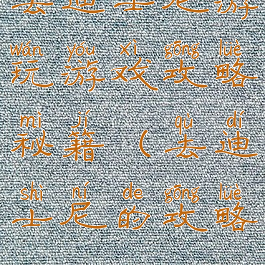 去迪士尼游
wán yóu xì gōng lüè
玩游戏攻略
mì jí qù dí
秘籍(去迪
shì ní de gōng lüè
士尼的攻略